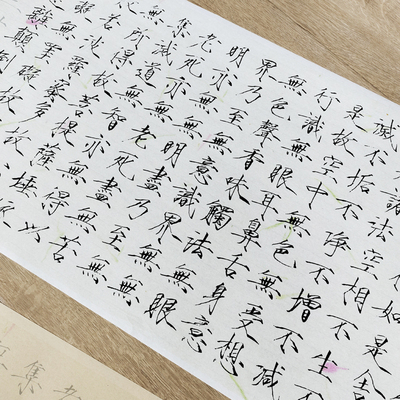 如是舍
諸法空相不生不
滅不垢不淨不增不減
是故空中無色無受想
行識無眼耳鼻舌身意
無色聲香味觸法無眼
界乃至無意識界無無
明亦無無明盡乃至無
老死亦無老死盡無苦
集滅道無智亦無得以
無所得故菩提薩埵
若波羅蜜多故